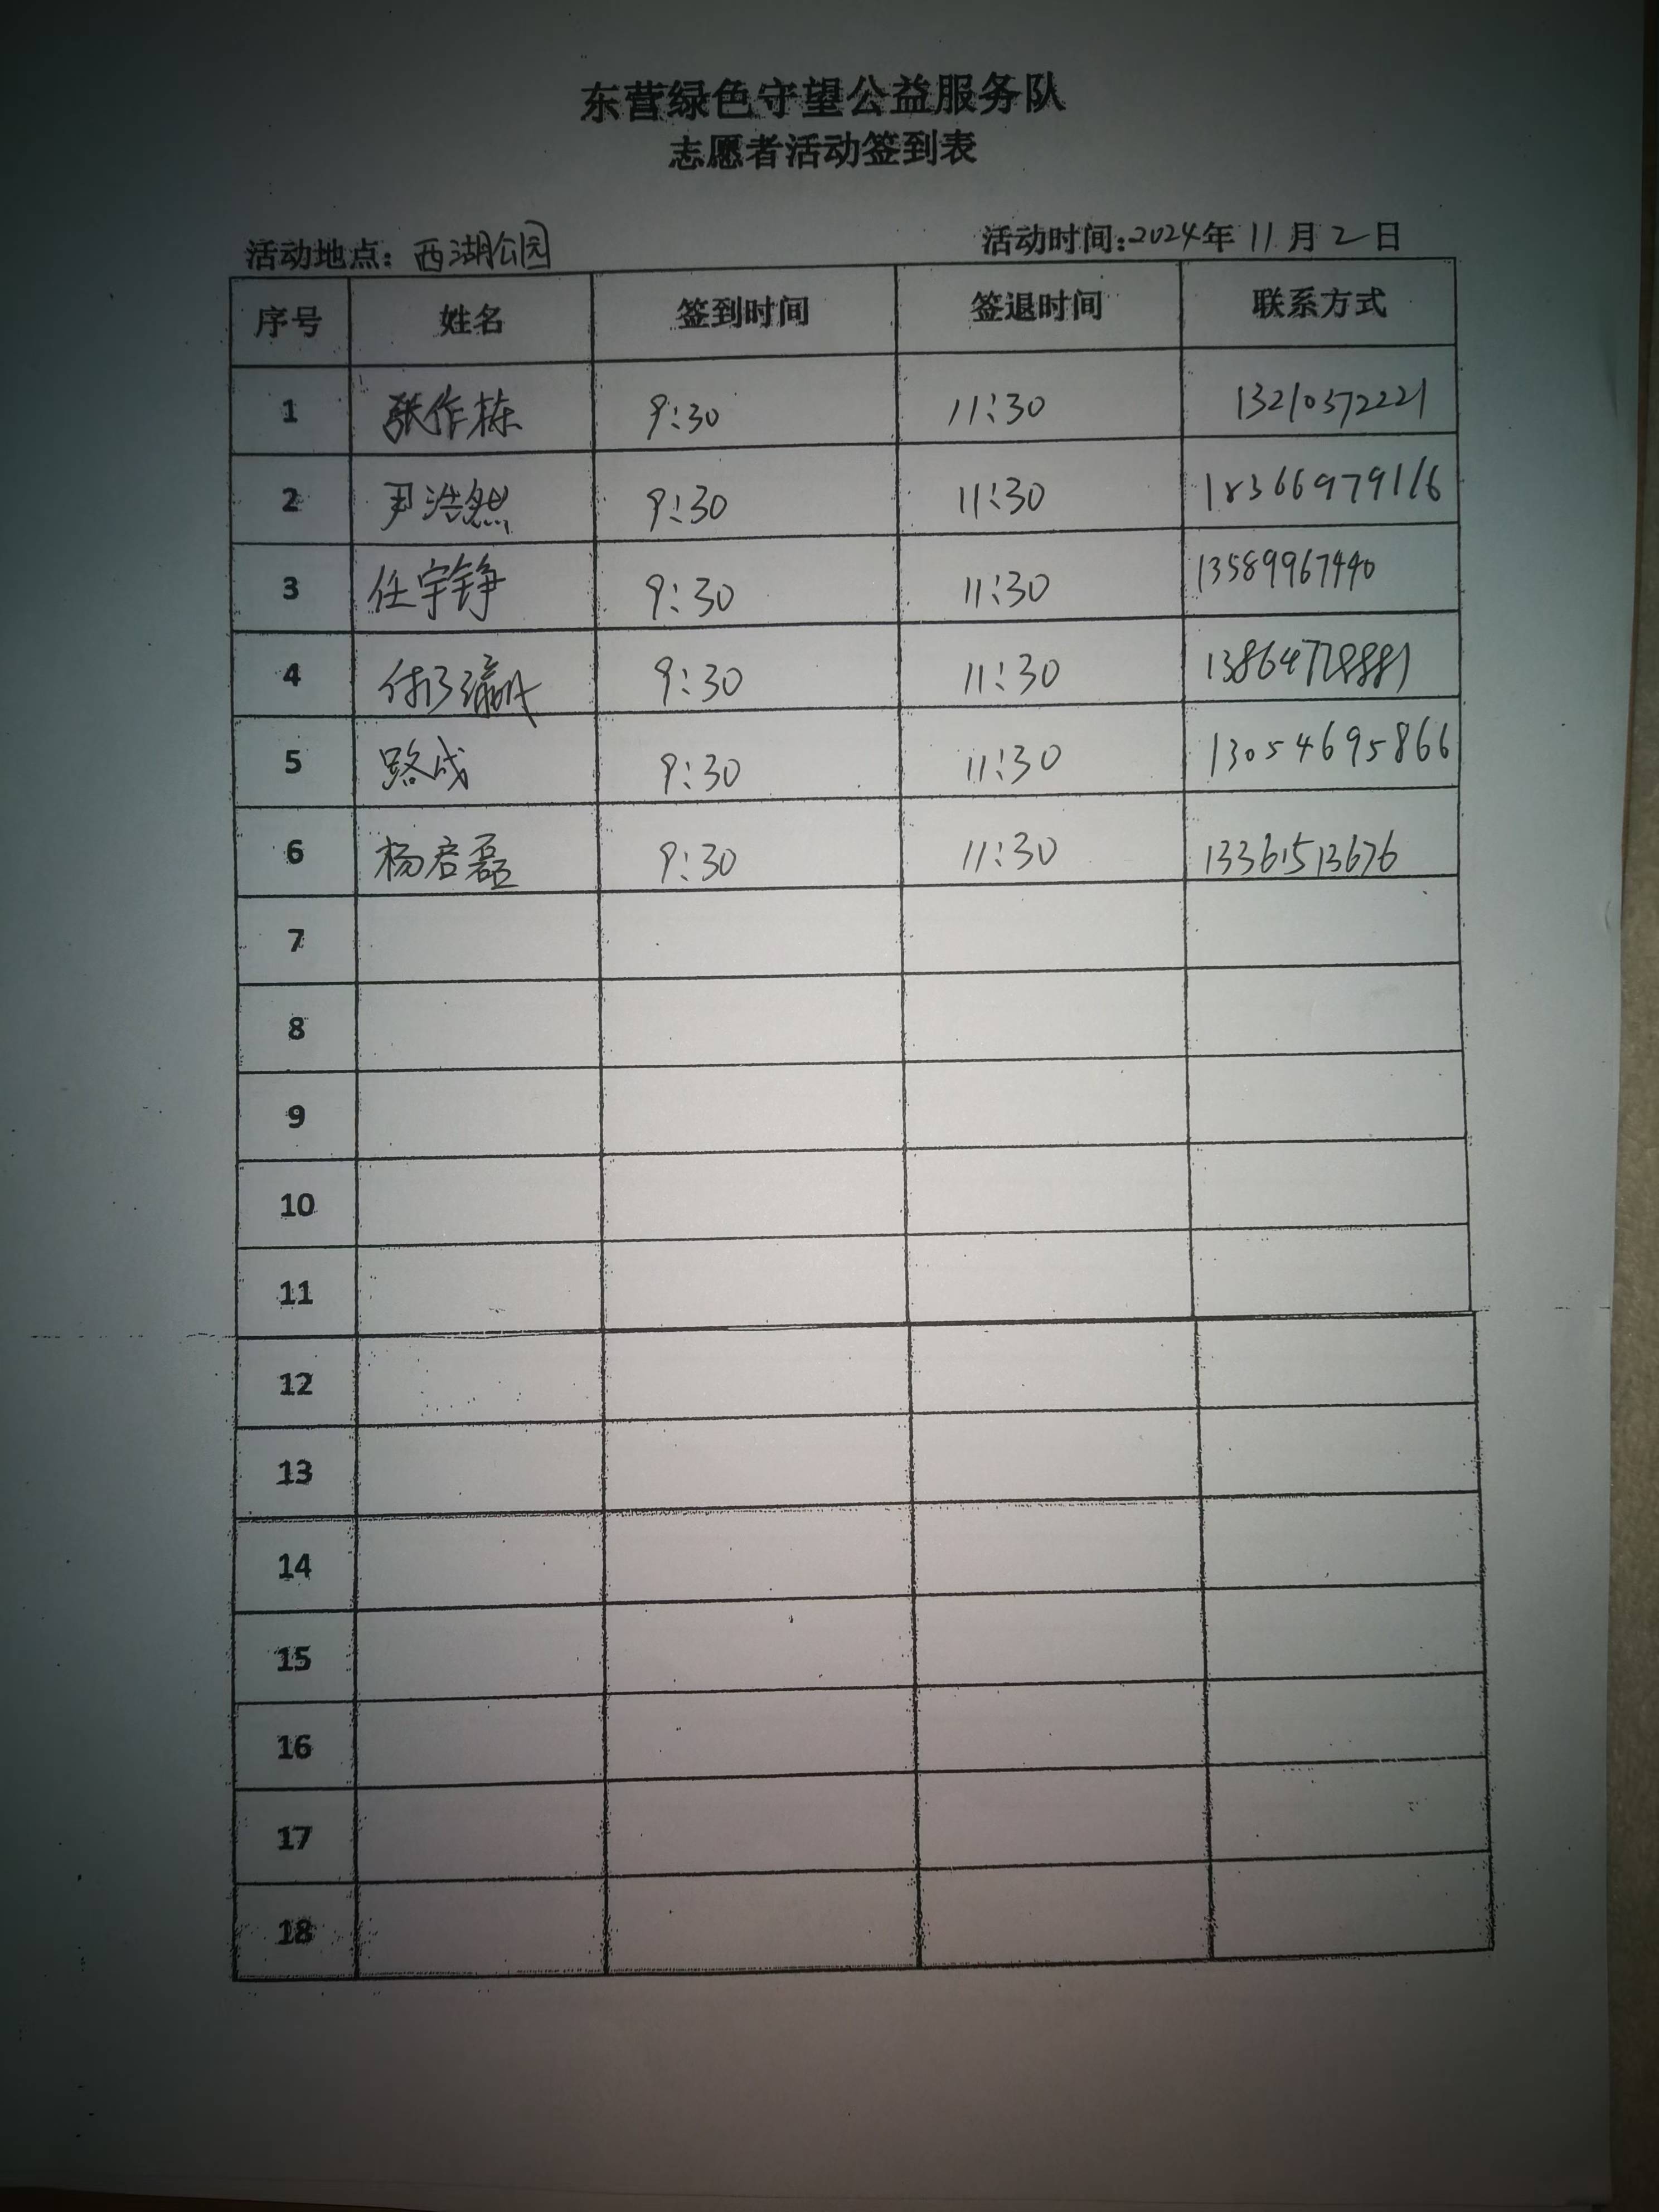 东营绿色守望公益服务队
志愿者活动签到表
活动地点：西湖公园 活动时间：2024年11月2日
序号 姓名 签到时间 签退时间 联系方式
1 张作栋 9:30 11:30 13210372221
2 尹浩然 9:30 11:30 18366979116
3 任宇铮 9:30 11:30 13589967440
4 9:30 11:30 13864728881
5 路成 9:30 11:30 13054695866
6 杨启磊 9:30 11:30 13361513676
7
8
9
10
11
12
13
14
15
16
17
18